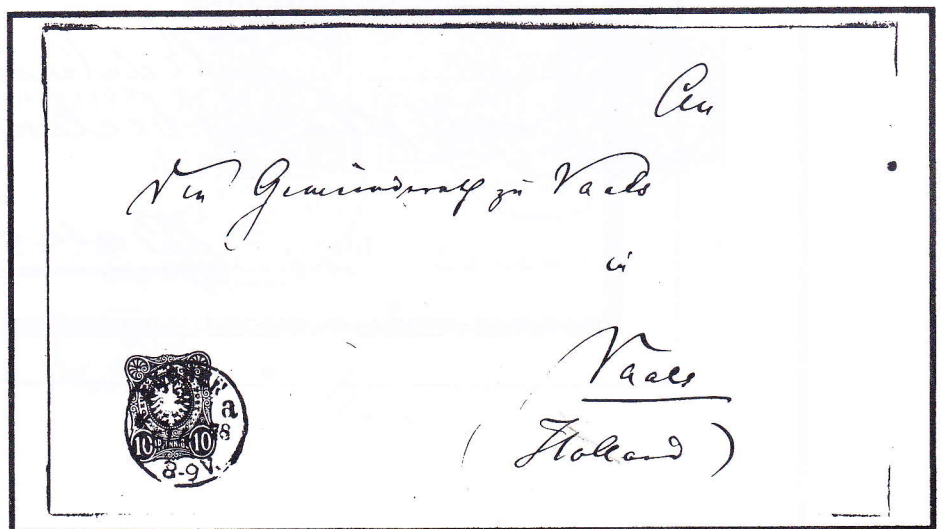 An
Den Gemeinderath zu Vaals
in
Vaals
(Holland)
10 10
a
78
8-9 V.